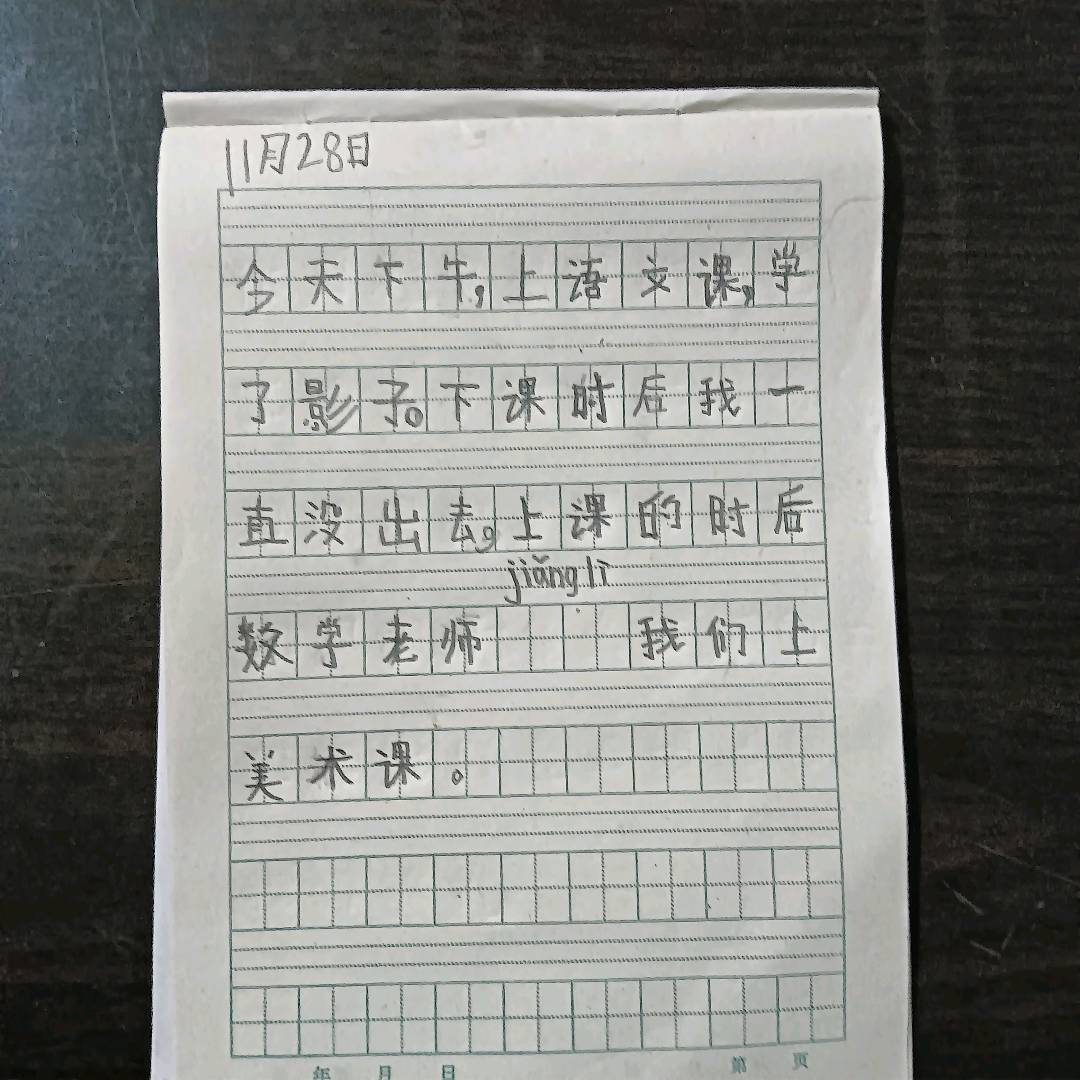 11月28日
今天下牛,上语文课,学
了影子。下课时后我一
直没出去,上课的时后
jiǎng lì
数学老师 我们上
美术课。
年 月 日 第 页